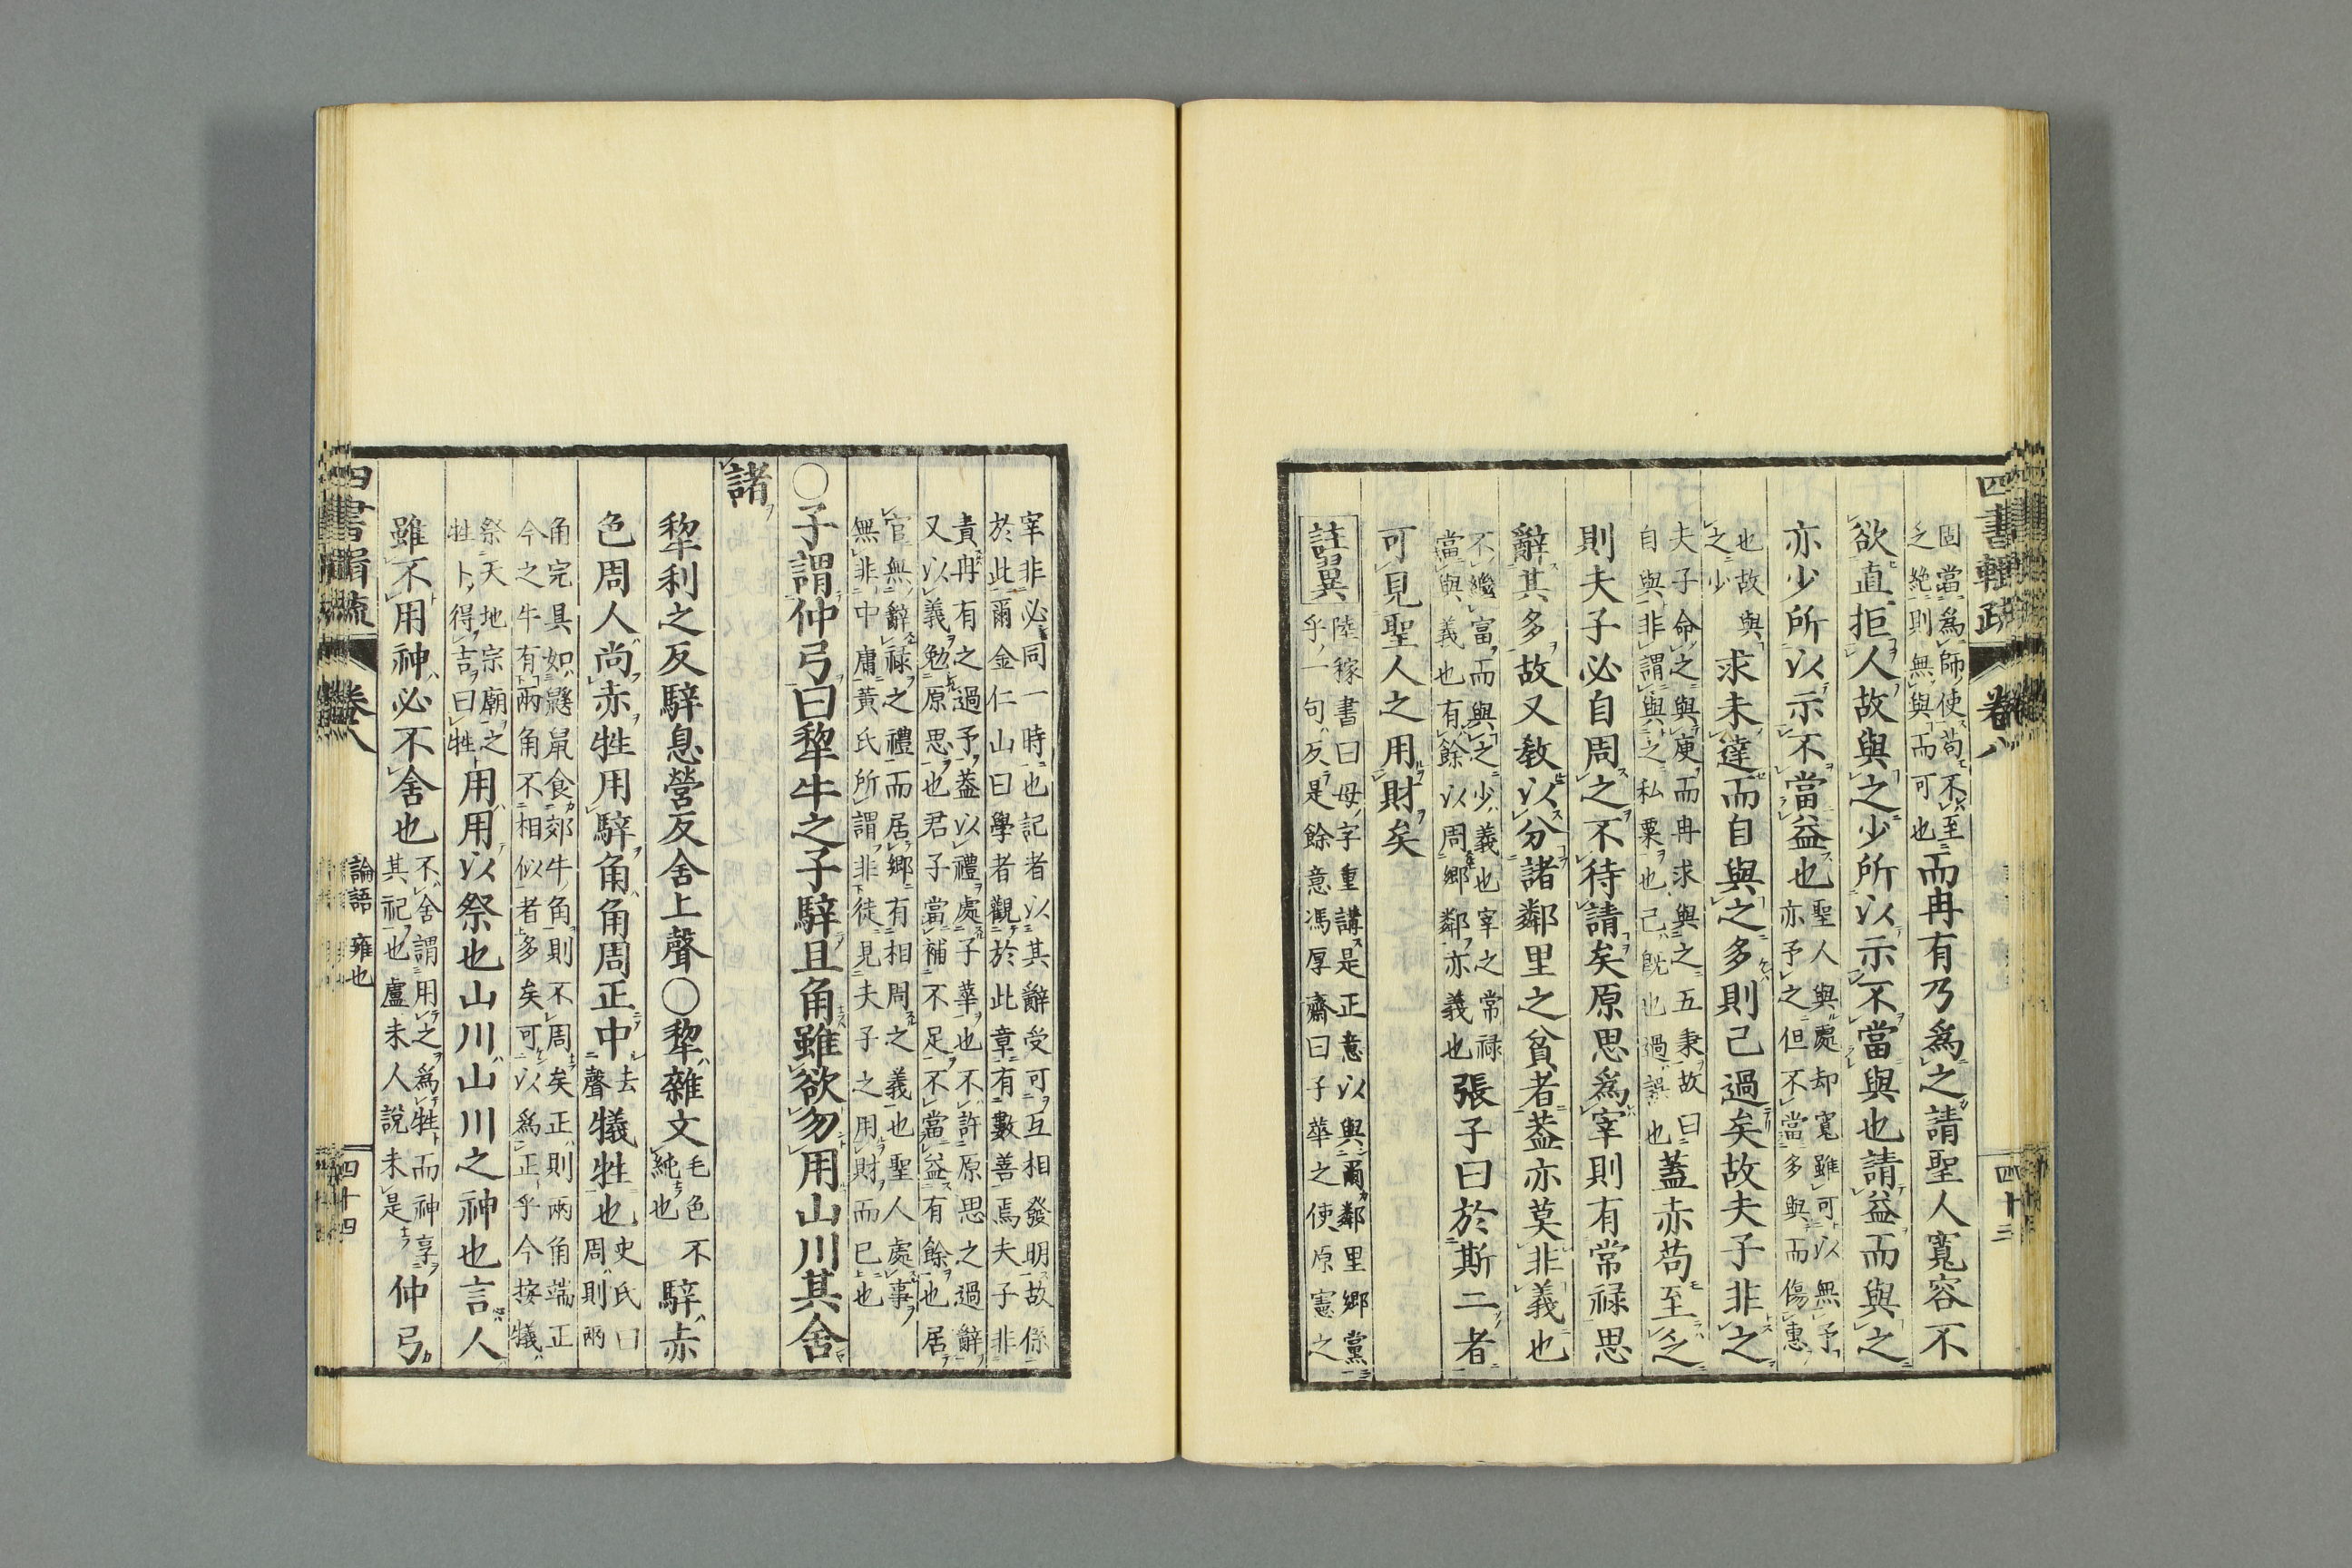 四書輯疏 卷八 四十三
固當爲師使苟不至
乏絶則無與而可也
而冉有乃爲之請聖人寬容不
欲直拒人故與之少所以示不當與也請益而與之
亦少所以示不當益也
聖人與處却寬雖可以無予
亦予之但不當多與而傷惠
也故與
之少
求未達而自與之多則已過矣故夫子非之
夫子命之與庾而冉求與之五秉故曰
自與非謂與之私粟也己既也過誤也
蓋赤苟至乏
則夫子必自周之不待請矣原思爲宰則有常祿思
辭其多故又教以分諸鄰里之貧者蓋亦莫非義也
不繼富而與之少義也宰之常祿
當與義也有餘以周鄉鄰亦義也
張子曰於斯二者
可見聖人之用財矣
註異
陸稼書曰毋字重講是正意以與爾鄰里鄉黨
乎一句反是餘意馮厚齋曰子華之使原憲之
宰非必同一時也記者以其辭受可互相發明故係
於此爾金仁山曰學者觀於此章有數善焉夫子非
責冉有之過予蓋以禮處子華也不許原思之過辭
又以義勉原思也君子當補不足不當益有餘也居
官無辭祿之禮而居鄉有相周之義也聖人處事
無非中庸黃氏所謂非徒見夫子之用財而已也
○子謂仲弓曰犂牛之子騂且角雖欲勿用山川其舍
諸
犂利之反騂息營反舍上聲○犂雜文
毛色不
純也
騂赤
色周人尚赤牲用騂角角周正中
去
聲
犧牲也
史氏曰
周則兩
角完具如鼷鼠食郊牛角則不周矣正則兩角端正
今之牛有兩角不相似者多矣可以爲正乎今按犧
祭天地宗廟之
牲卜得吉曰牲
用用以祭也山川山川之神也言人
雖不用神必不舍也
不舍謂用之爲牲而神享
其祀也盧未人說未是
仲弓
四書輯疏 卷八 論語 雍也 四十四